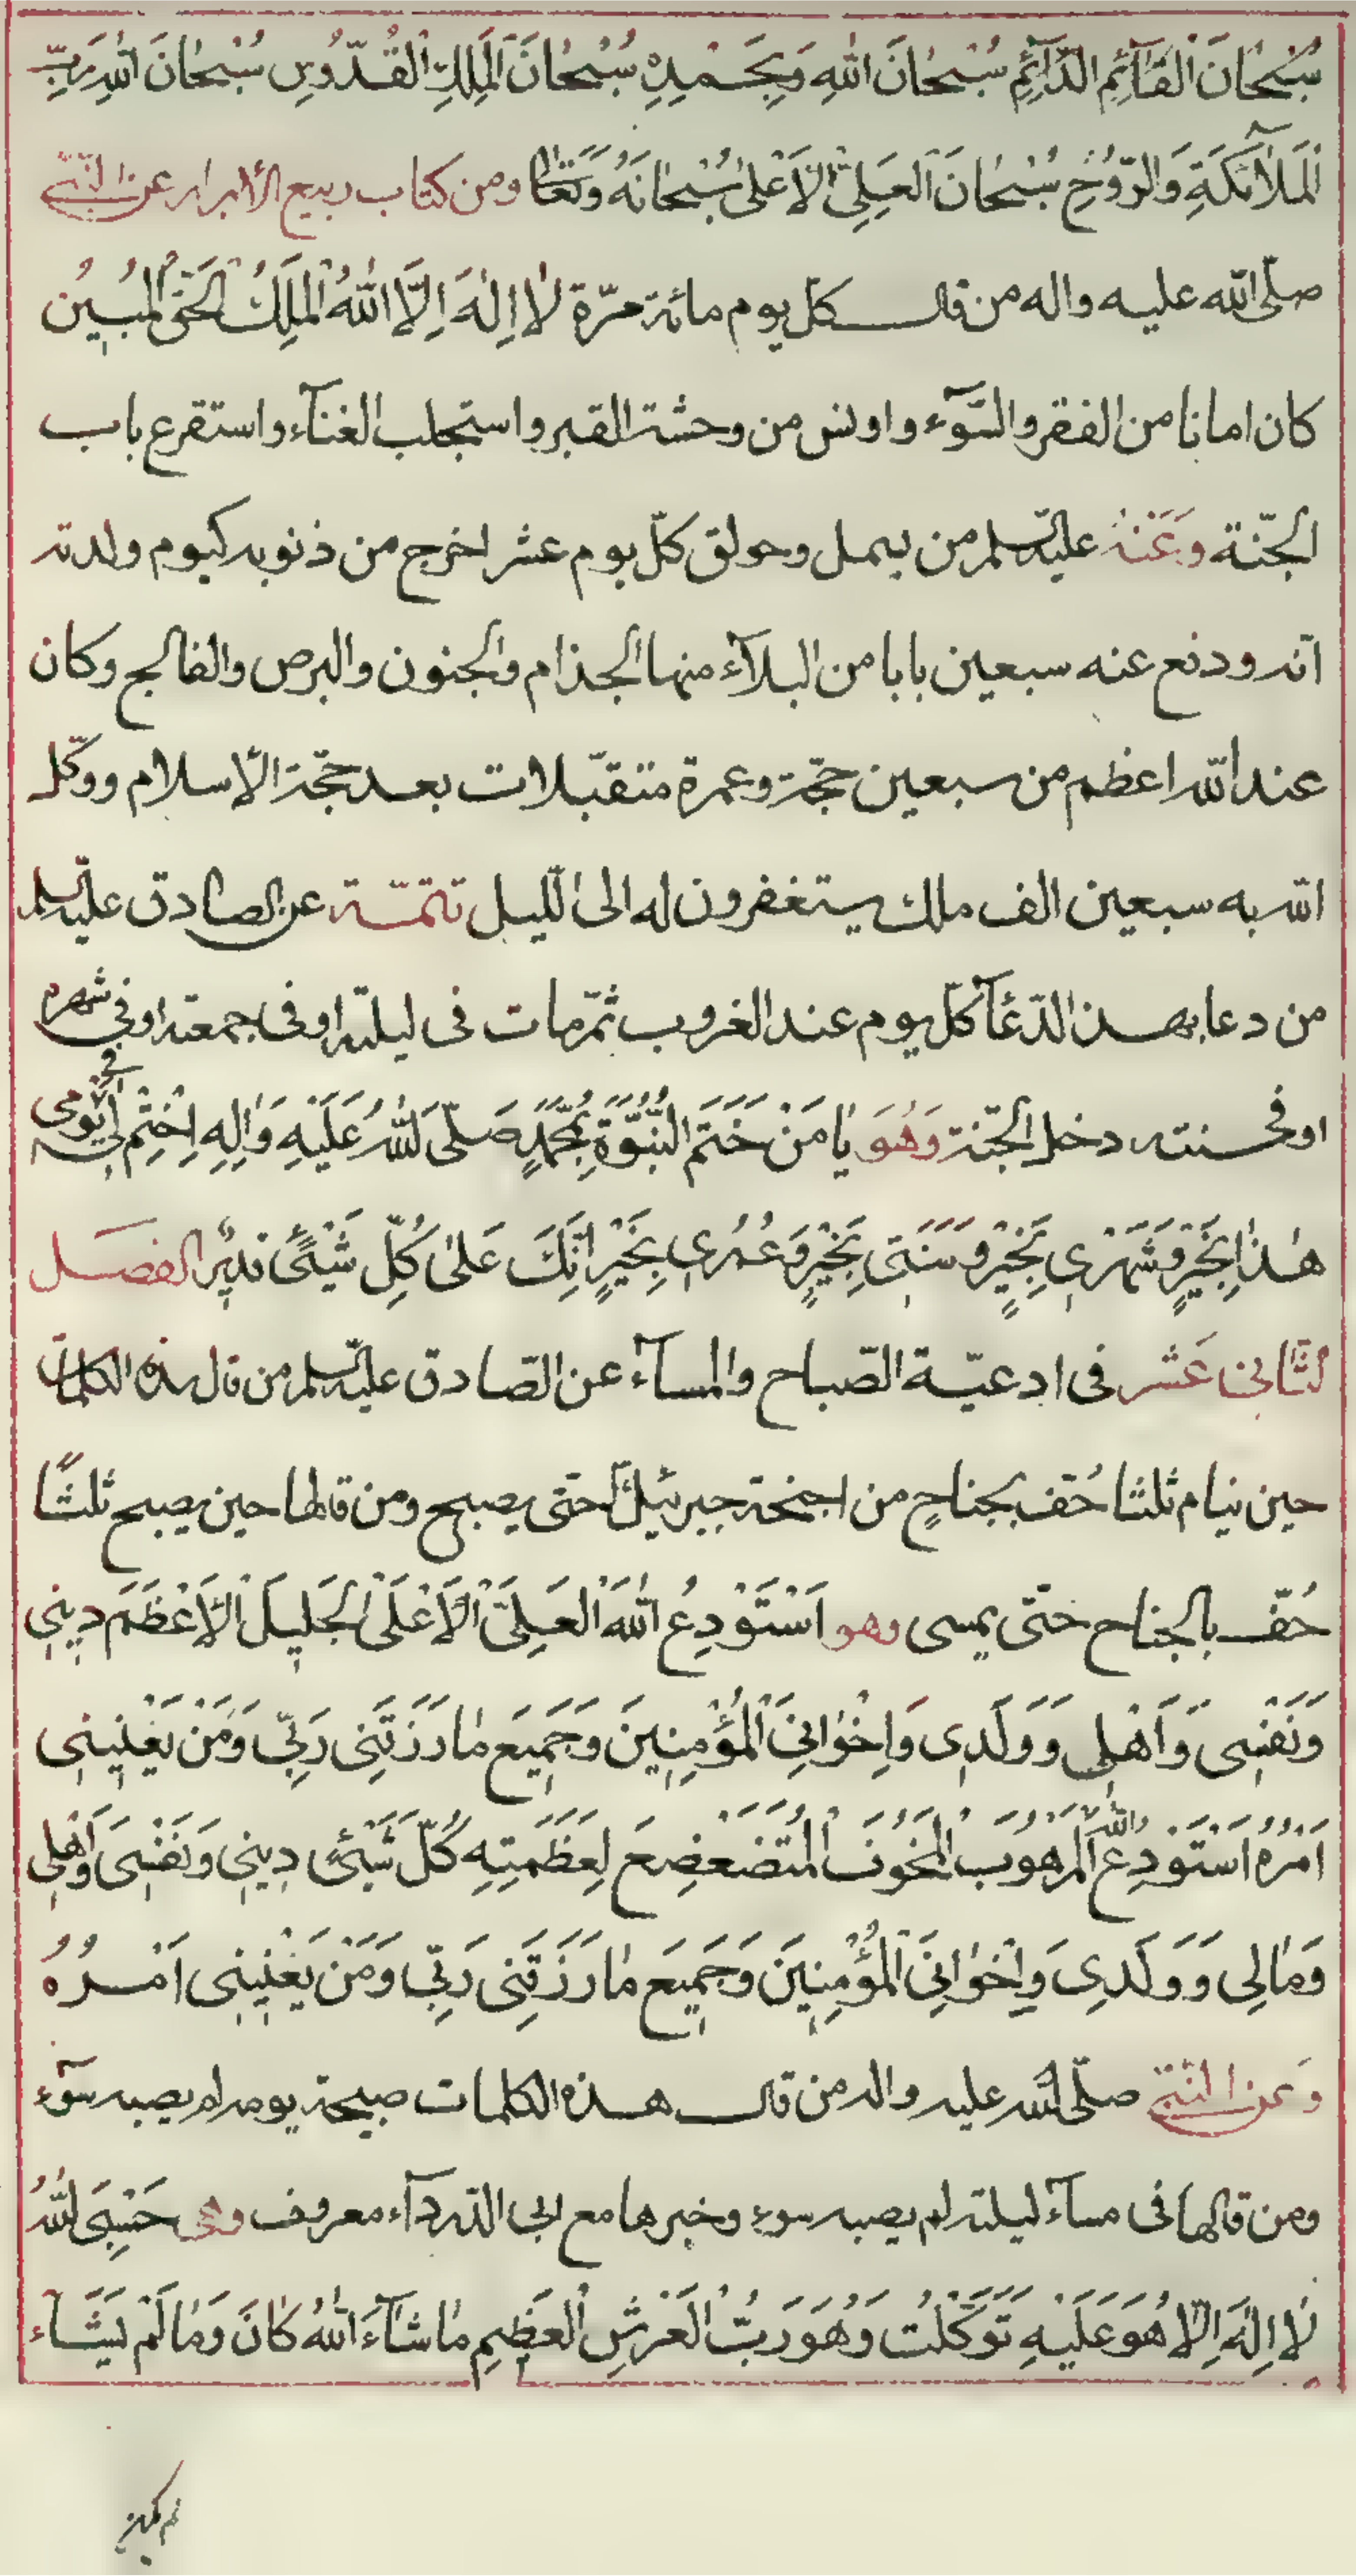 سُبْحَانَ الْقَآئِمِ الدَّآئِمِ سُبْحَانَ اللهِ وَبِحَمْدِهِ سُبْحَانَ الْمَلِكِ الْقُدُّوسِ سُبْحَانَ اللهِ رَبِّ
الْمَلآئِكَةِ وَالرُّوُحِ سُبْحَانَ الْعَلِيِّ الْاَعْلىٰ سُبْحَانَهُ وَتَعَالىٰ ومن كتاب ربيع الأبرار عن النّبيّ
صلّى الله عليه واله من قال كل يوم مائة مرّة لٰا اِلٰهَ اِلَّا اللهُ الْمَلِكُ الْحَقُّ الْمُبِينُ
كان امانا من الفقر والسّوۤء واونس من وحشة القبر واستجلب الغنآء واستقرع باب
الجنّة وَعَنْهُ عليه السلم من بسمل وحولق كلّ يوم عشر اخرج من ذنوبه كيوم ولدته
امّه ودفع عنه سبعين بابا من البلآء منها الجذام والجنون والبرص والفالج وكان
عند الله اعظم من سبعين حجّة وعمرة متقبّلات بعد حجّة الاسلام ووكّل
الله به سبعين الف ملك يستغفرون له الى اللّيل تتمّة عن الصادق عليه السلم
من دعا بهذا الدّعآ كلّ يوم عند الغروب ثمّ مات فى ليلته او فى جمعته او في شهره
او فى سنته دخل الجنّة وَهُوَ يٰا مَنْ خَتَمَ النُّبُوَّةَ بِمُحَمَّدٍ صَلَّى اللهُ عَلَيْهِ وَاٰلِهِ اِخْتِمْ لِي فى يَوْمى
هٰذٰا بِخَيْرٍ وَشَهْرِي بِخَيْرٍ وَسَنَتِى بِخَيْرٍ وَعُمُرِي بِخَيْرٍ اِنَّكَ عَلىٰ كُلِّ شَيْئٍ قديرٌ الفصل
الثَّانى عَشر فى ادعيّة الصّباح والمسآء عن الصّادق عليه السلم من قال هذه الكلمات
حين ينام ثلثا حُفّ بجناحٍ من اجنحة جبرئيل حتى يصبح ومن قالها حين يصبح ثلثًا
حُفّ بالجناح حتّى يمسى وهو اَسْتَوْدِعُ اللهَ الْعَلِيَّ الْاَعْلَى الْجَلِيلَ الْاَعْظَمَ دِينِي
وَنَفْسِى وَاَهْلِى وَوَلَدِى وَاِخْوٰانِيَ الْمُؤْمِنِينَ وَجَمِيعَ مٰا رَزَقَنِى رَبِّي وَمَنْ يَعْنِينِى
اَمْرُهُ اَسْتَوْدِعُ اللهَ الْمَرْهُوبَ الْمَخُوفَ الْمُتَضَعْضِعَ لِعَظَمَتِهِ كُلُّ شَيْئٍ دِينِي وَنَفْسِى وَاَهْلِى
وَمٰالِى وَوَلَدِى وَاِخْوٰانِيَ الْمُؤْمِنِينَ وَجَمِيعَ مٰا رَزَقَنِى رَبِّي وَمَنْ يَعْنِينِى اَمْرُهُ
وَعن النّبيّ صلّى الله عليه واله من قال هذه الكلمات صبيحة يومه لم يصبه سوۤء
ومن قالها فى مسآء ليلته لم يصبه سوء وخبرها مع ابى الدّردآء معروف وهى حَسْبِىَ اللهُ
لٰا اِلٰهَ اِلّٰا هُوَ عَلَيْهِ تَوَكَّلْتُ وَهُوَ رَبُّ الْعَرْشِ الْعَظِيمِ مٰا شٰآءَ اللهُ كٰانَ وَمٰا لَمْ يَشَآء
لم يكن